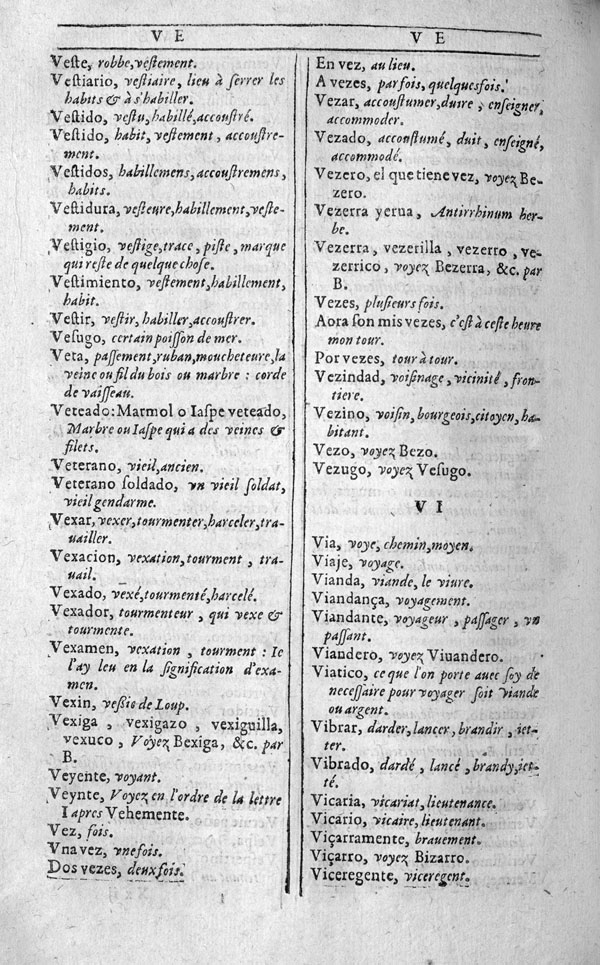 V E
Veſte, robbe, veſtement.
Veſtiario, veſtiaire, lieu à ſerrer les
habits & à s'habiller.
Veſtido, veſtu, habillé, accouſtré.
Veſtido, habit, veſtement, accouſtre-
ment.
Veſtidos, habillemens, accouſtremens,
habits.
Veſtidura, veſteure, habillement, veſte-
ment.
Veſtigio, veſtige, trace, piſte, marque
qui reſte de quelque choſe.
Veſtimiento, veſtement, habillement,
habit.
Veſtir, veſtir, habiller, accouſtrer.
Veſugo, certain poiſſon de mer.
Veta, paſſement, ruban, moucheteure, la
veine ou fil du bois ou marbre : corde
de vaiſſeau.
Veteado: Marmol o Iaſpe veteado,
Marbre ou Iaſpe qui a des veines &
filets.
Veterano, vieil, ancien.
Veterano ſoldado, vn vieil ſoldat,
vieil gendarme.
Vexar, vexer, tourmenter, harceler, tra-
uailler.
Vexacion, vexation, tourment, tra-
uail.
Vexado, vexé, tourmenté, harcelé.
Vexador, tourmenteur, qui vexe &
tourmente.
Vexamen, vexation, tourment : Ie
l'ay leu en la ſignification d'exa-
men.
Vexin, veſſie de Loup.
Vexiga, vexigazo, vexiguilla,
vexuco, Voyez Bexiga, &c. par
B.
Veyente, voyant.
Veynte, Voyez en l'ordre de la lettre
I apres Vehemente.
Vez, fois.
Vna vez, vne fois.
Dos vezes, deux fois.
V E
En vez, au lieu.
A vezes, par fois, quelquesfois.
Vezar, accouſtumer, duire, enſeigner,
accommoder.
Vezado, accouſtumé, duit, enſeigné,
accommodé.
Vezero, el que tiene vez, voyez Be-
zero.
Vezerra yerua, Antirrhinum her-
be.
Vezerra, vezerilla, vezerro, ve-
zerrico, voyez Bezerra, &c. par
B.
Vezes, pluſieurs fois.
Aora ſon mis vezes, c'eſt à ceſte heure
mon tour.
Por vezes, tour à tour.
Vezindad, voiſinage, vicinité, fron-
tiere.
Vezino, voiſin, bourgeois, citoyen, ha-
bitant.
Vezo, voyez Bezo.
Vezugo, voyez Veſugo.
V I
Via, voye, chemin, moyen.
Viaje, voyage.
Vianda, viande, le viure.
Viandança, voyagement.
Viandante, voyageur, paſſager, vn
paſſant.
Viandero, voyez Viuandero.
Viatico, ce que l'on porte auec ſoy de
neceſſaire pour voyager ſoit viande
ou argent.
Vibrar, darder, lancer, brandir, iet-
ter.
Vibrado, dardé, lancé, brandy, iet-
té.
Vicaria, vicariat, lieutenance.
Vicario, vicaire, lieutenant.
Viçarramente, brauement.
Viçarro, voyez Bizarro.
Viceregente, viceregent.